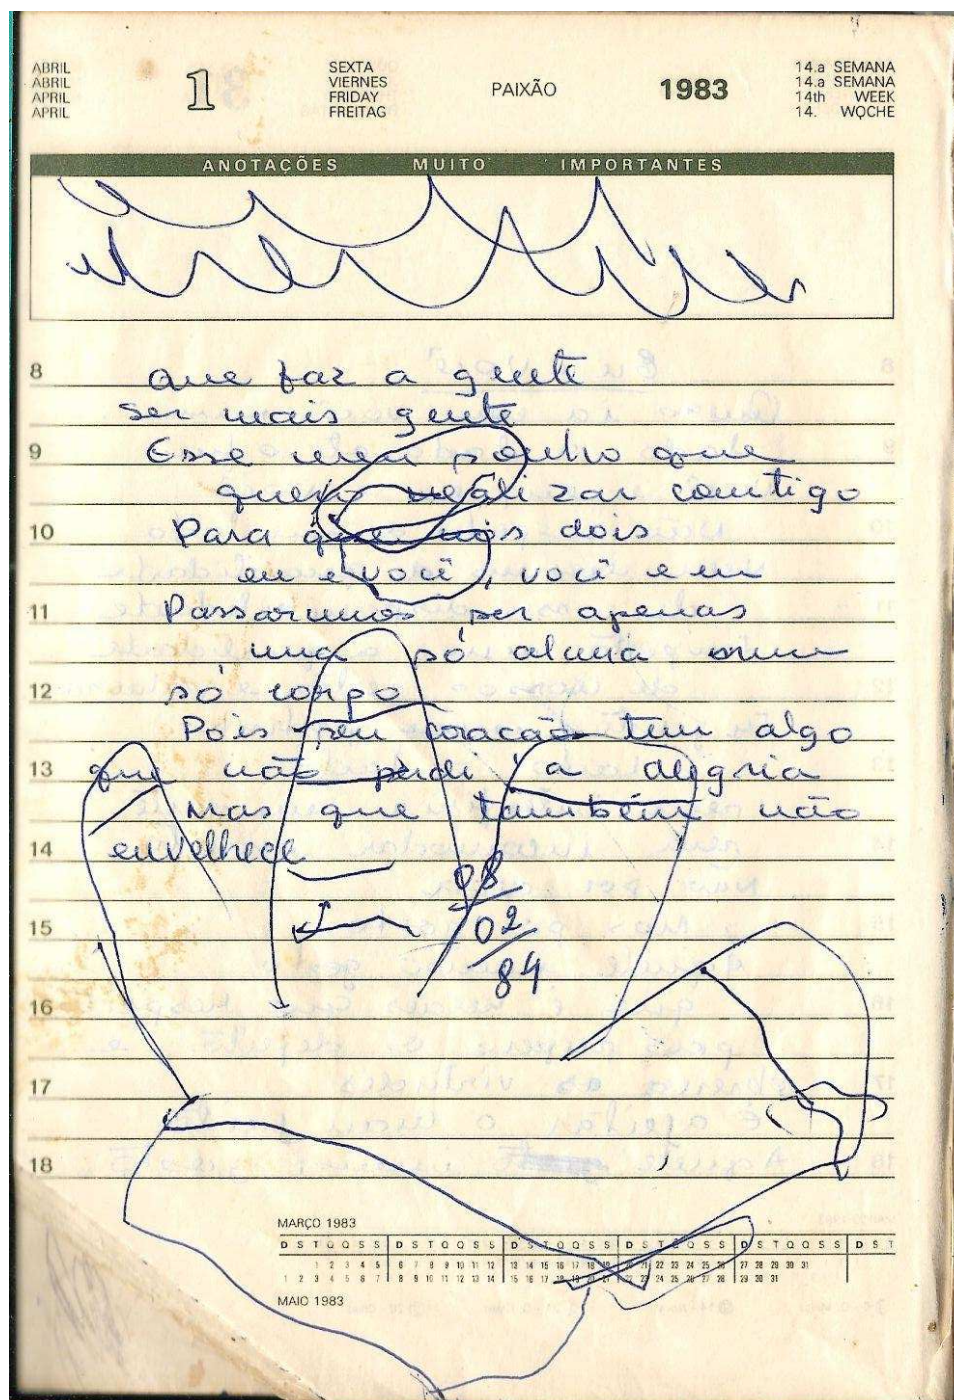 ABRIL
ABRIL
APRIL
APRIL
1
SEXTA
VIERNES
FRIDAY
FREITAG
PAIXÃO
1983
14.a SEMANA
14.a SEMANA
14th WEEK
14. WOCHE
ANOTAÇÕES MUITO IMPORTANTES
8 que faz a gente
ser mais gente
9 Esse meu sonho que
quero realizar contigo
10 Para que nós dois
eu e você, você e eu
11 Passarmos ser apenas
uma só alma num
12 só corpo
Pois seu coração tem algo
13 que não perdi a alegria
Mas que também não
14 envelhece
08
15 02
84
16
17
18
MARÇO 1983
D S T Q Q S S D S T Q Q S S D S T Q Q S S D S T Q Q S S D S T Q Q S S D S T
1 2 3 4 5 6 7 8 9 10 11 12 13 14 15 16 17 18 19 20 21 22 23 24 25 26 27 28 29 30 31
1 2 3 4 5 6 7 8 9 10 11 12 13 14 15 16 17 18 19 20 21 22 23 24 25 26 27 28 29 30 31
MAIO 1983